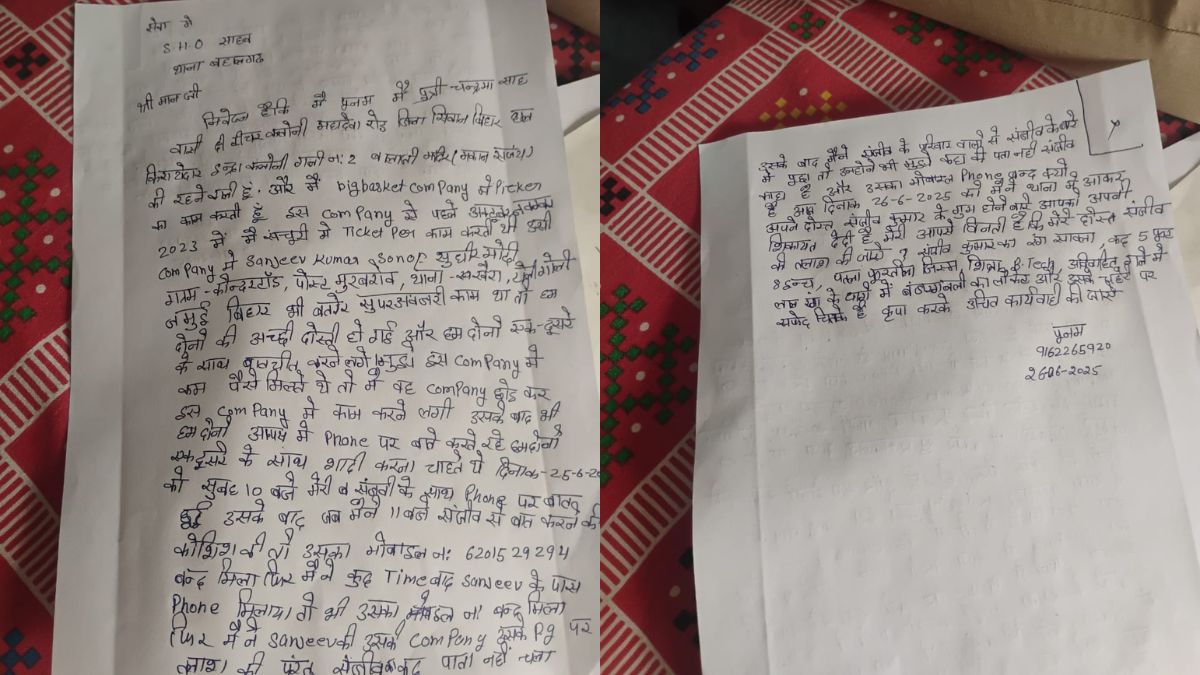 सेवा मे
S.H.O साहब
थाना बहालगढ
श्री मान जी
निवेदन है कि मै पूनम मै पुत्री चन्द्रमा साह
वासी टीचर कलोनी महादेवा रोड जिला सिवान बिहार हाल
किरायेदार इन्द्रा कलोनी गली न: 2 मन्दिर (मकान संजय)
की रहने वाली हूं. और मै bigbasket company मे Picker
का काम करती हूँ इस Company से पहले
2023 में मै मे Ticket Per काम करती थी उसी
Company मे Sanjeev Kumar Sonof सुधीर मोदी
ग्राम- पोस्ट मुरबरो थाना-
जमुई बिहार भी बतोर सुपरवाइजरी काम था तो हम
दोनो की अच्छी दोस्ती हो गई और हम दोनो एक-दूसरे
के साथ बातचीत करने लगे। मुझे इस Company मे
कम पैसे मिलते थे तो मै वह Company छोड कर
इस Company मे काम करने लगी उसके बाद भी
हम दोनो आपस मे Phone पर बाते करते रहे हम दोनो
एक दूसरे के साथ शादी करना चाहते थे दिनांक-25-6-20
को सुबह 10 बजे मेरी व संजीव के साथ Phone पर बात
हुई उसके बाद जब मैने 11 बजे संजीव से बात करने की
कोशिश की तो उसका मोबाइल न: 6201529294
बन्द मिला फिर मै ने कुछ Time बाद Sanjeev के पास
Phone मिलाया तो भी उसका मोबाइल न: बन्द मिला
फिर मै ने Sanjeev की उसके Company उसके Pg पर
तलाश की परंतु संजीव का कोई पता नही चला
उसके बाद मैने संजीव के परिवार वालो से संजीव के बारे
मे पूछा तो उन्होने भी मुझे कहा की पता नही संजीव
कहा है और उसका मोबाइल Phone बन्द क्यो
है आज दिनांक 26-6-2025 को मै ने थाना मे आकर
अपने दोस्त संजीव कुमार के गुम होने बारे आपको अपनी
शिकायत दे दी है मेरी आपसे विनती है कि मेरे दोस्त संजीव
की तलाश की जाये। संजीव कुमार का रंग सावला, कद 5 फुट
8 इन्च, पतला फुर्तीला जिस्म शिक्षा B.Tech, अविवाहित गले मे
लाल रंग के धागे में बजरंगबली का लोकेट और उसके चेहरे पर
सफेद है कृपा करके उचित कार्यवाही की जाये
पूनम
9162265920
26-06-2025